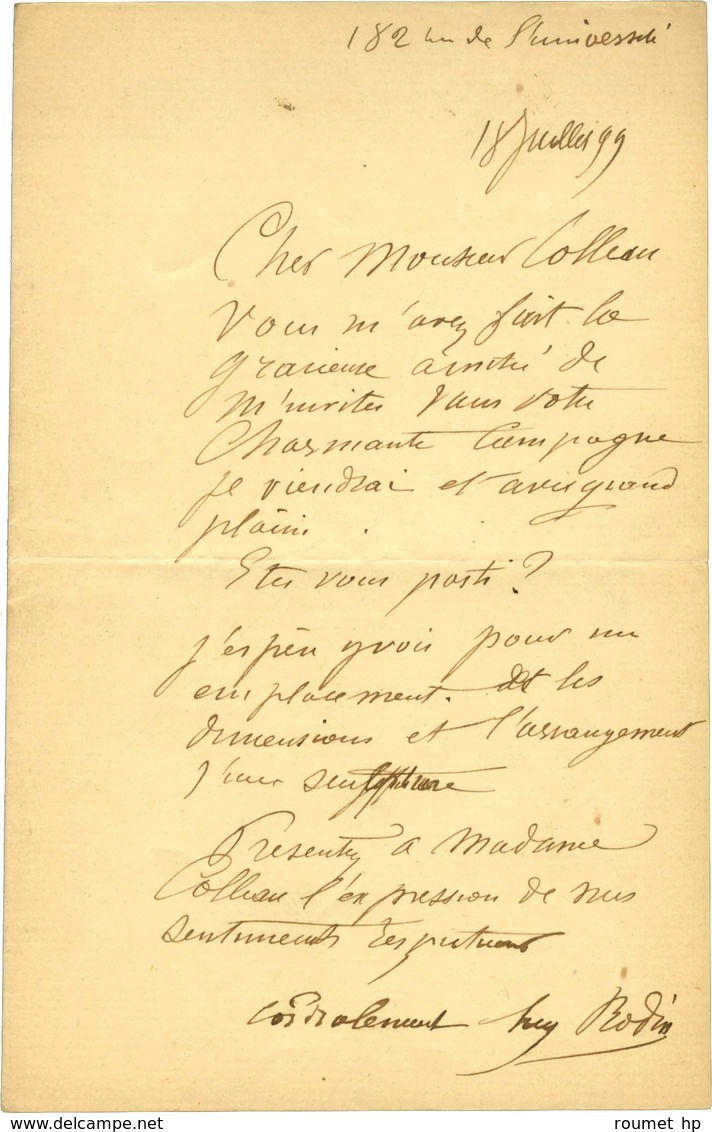 182 rue de l'université
18 Juillet 99
Cher Monsieur Colleau
Vous m'avez fait la
gracieuse amitié de
m'inviter dans votre
charmante campagne
je viendrai et avec grand
plaisir.
Etes vous parti?
J'espère y voir pour un
emplacement. et les
dimensions et l'arrangement
d'une sculpture
Presentez a Madame
Colleau l'expression de mes
sentiments respectueux
cordialement Aug Rodin
roumet hp